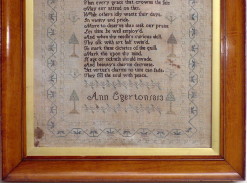 That every grace that crowns the fair
May our attend on thee.
While others idly waste their days.
In vanity and pride.
More to deserve than seek our praise
thy time be well employ'd.
And when the needle's curious skill
Thy silk with art hath twin'd.
To mark these dictates of the quill
Mark this upon thy mind.
If age or sickness should wrinkle
And beauty's charms decrease
Yet virtue's charms no time can fade
They fill the soul with peace.
Ann Egerton 1813